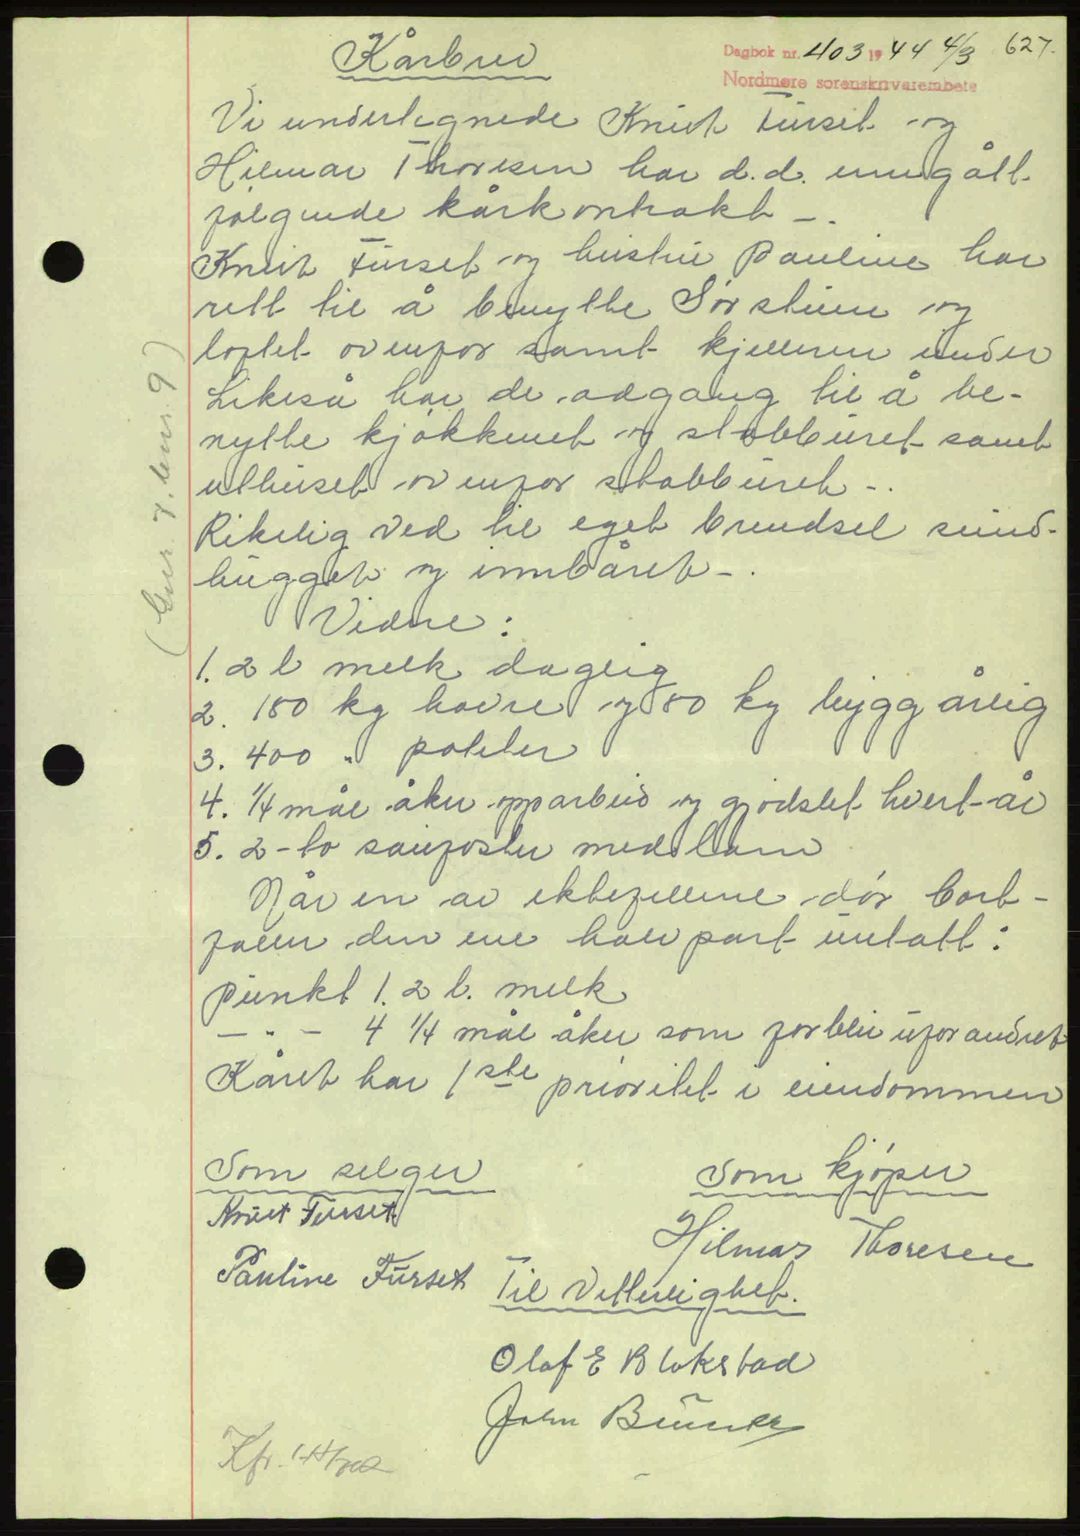 Kårbrev
Dagbok nr. 403 1944 4/3 627.
Nordmøre sorenskriverembete
Vi undertegnede Knut Furset og
Hilmar Thoresen har d.d. inngått
følgende kårkontrakt -.
Knut Furset og hustru Pauline har
rett til å benytte Sørstuen og
loftet ovenfor samt kjelleren under
Likeså har de adgang til å be-
nytte kjøkkenet og stabburet samt
uthuset ovenfor stabburet -.
Rikelig ved til eget brendsel smid-
hugget og innbåret -.
Vidre:
1. 2 l melk daglig
2. 180 kg havre og 80 kg bygg årlig
3. 400 " poteter
4. 1/4 mål åker opparbeid og gjødslet hvert år
5. 2-to sauefoster med lam
Når en av ektefellene dør bort-
faller den ene halvpart untatt:
punkt 1. 2 l. melk
- " - 4 1/4 mål åker som forbli uforandret
Kåret har 1ste prioritet i eiendommen
Som selger
Som kjøper
Knut Furset
Hilmar Thoresen
Pauline Furset
Til Vitterlighet.
Olaf E Blokstad
John
Kfr.
(Gnr. 7. bnr. 9)